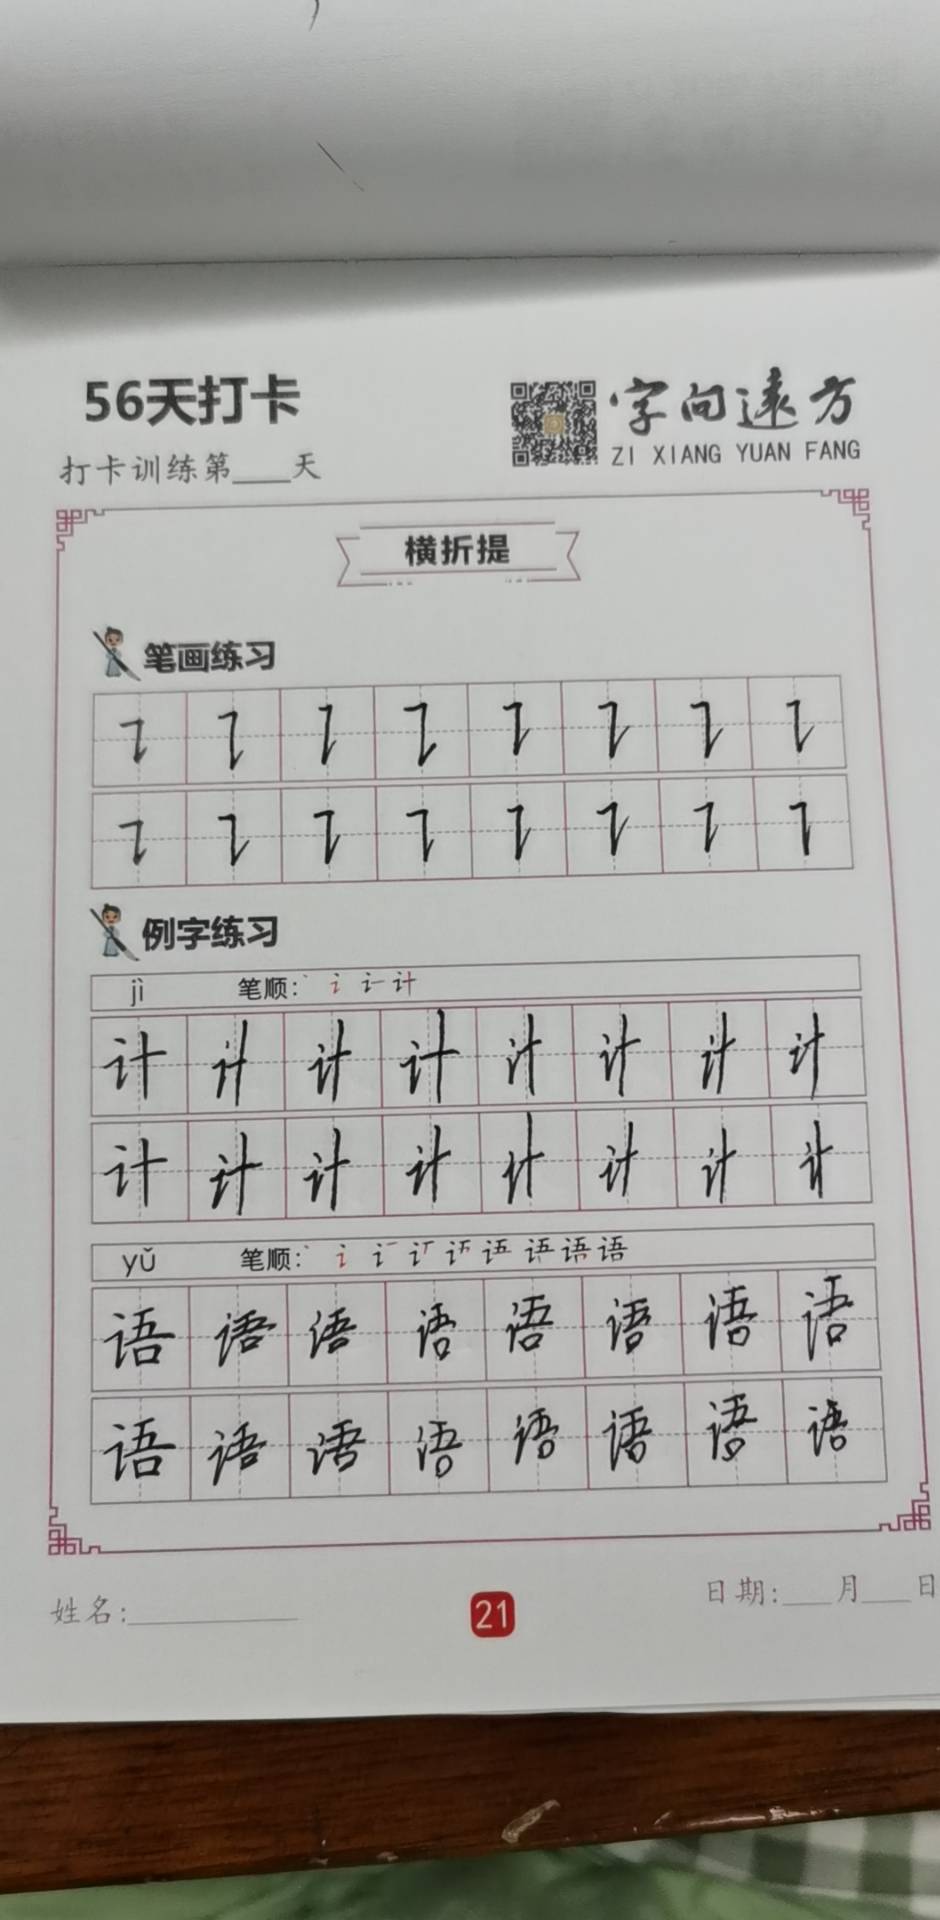 56天打卡
字向遠方
ZI XIANG YUAN FANG
打卡训练第____天
横折提
笔画练习
㇊ ㇊ ㇊ ㇊ ㇊ ㇊ ㇊ ㇊
㇊ ㇊ ㇊ ㇊ ㇊ ㇊ ㇊ ㇊
例字练习
jì 笔顺: 丶 讠 计
计 计 计 计 计 计 计 计
计 计 计 计 计 计 计 计
yǔ 笔顺: 丶 讠 语
语 语 语 语 语 语 语 语
语 语 语 语 语 语 语 语
姓名:__________
21
日期:___月___日